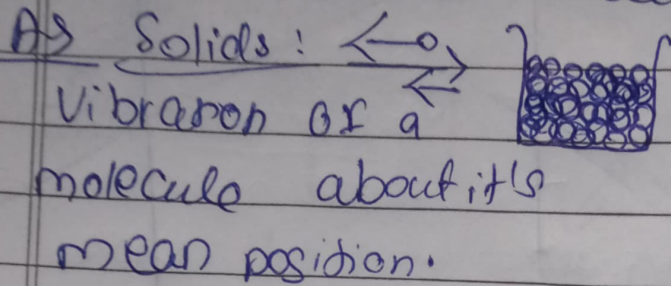 As Solids:
Vibraron of a
molecule about it's
mean position.